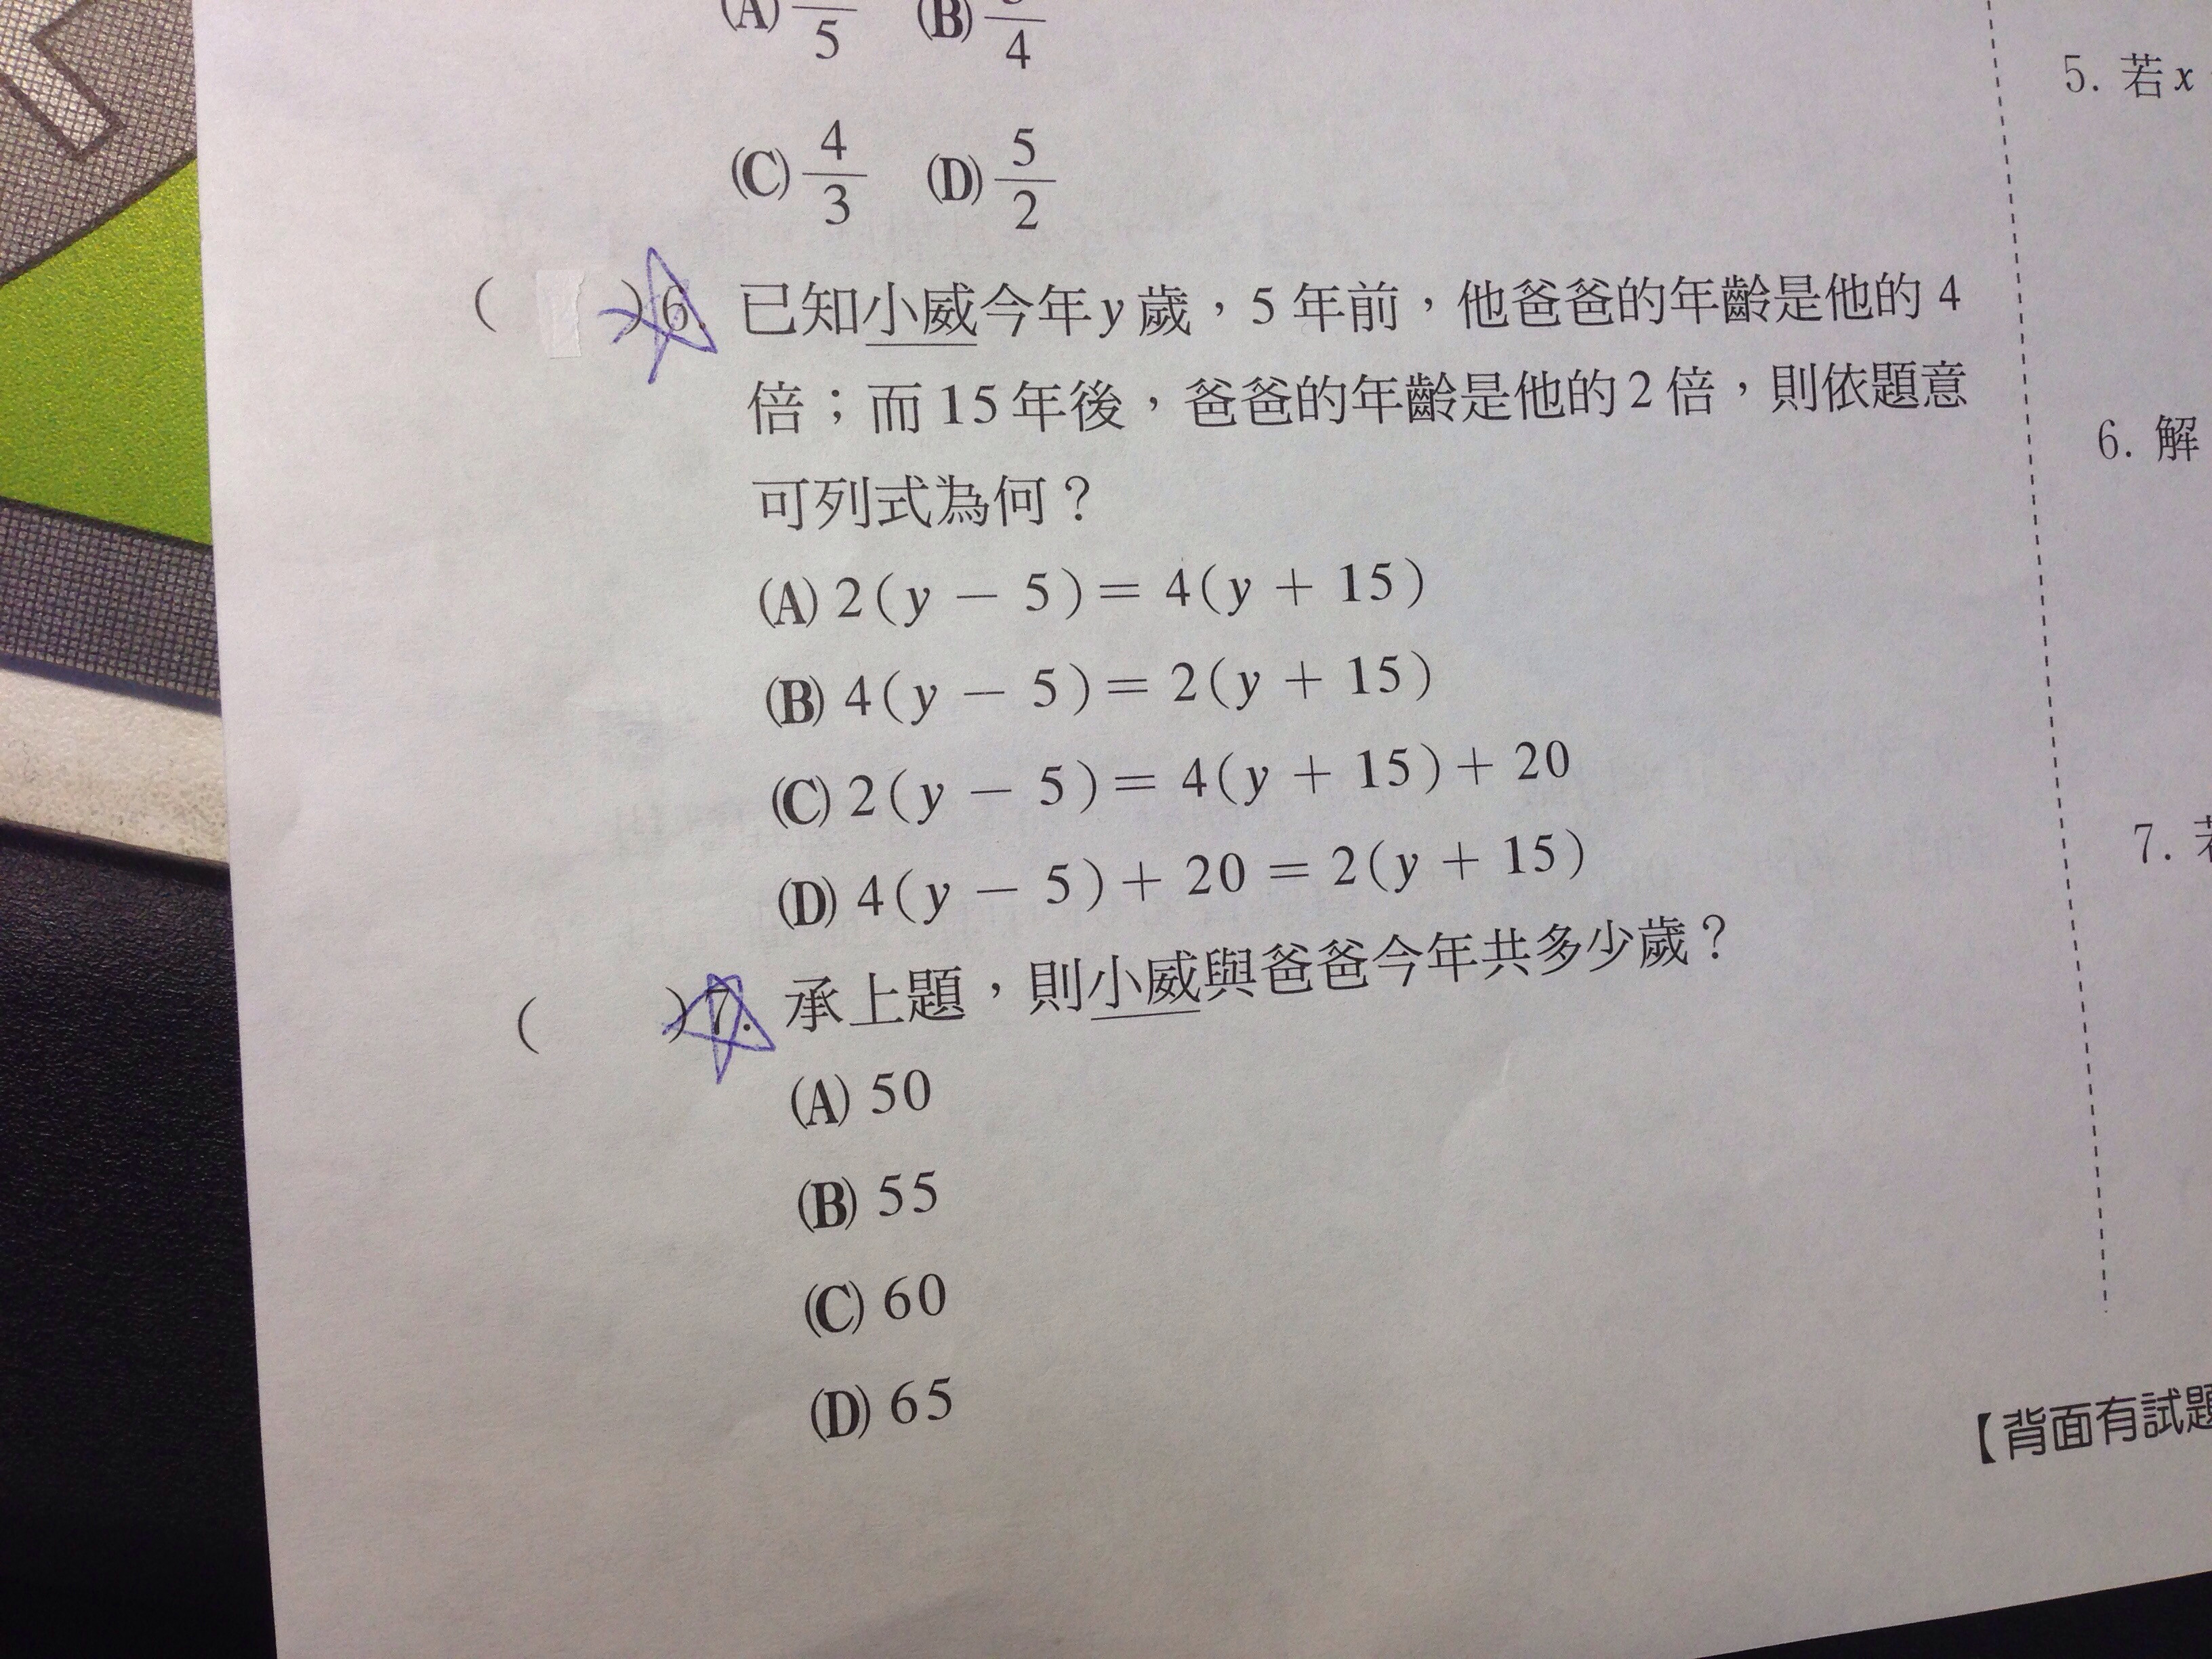 (A) 5 (B) 4
(C) 4/3 (D) 5/2
( ) 6. 已知小威今年y歲，5年前，他爸爸的年齡是他的4
倍；而15年後，爸爸的年齡是他的2倍，則依題意
可列式為何？
(A) 2(y － 5)＝ 4(y ＋ 15)
(B) 4(y － 5)＝ 2(y ＋ 15)
(C) 2(y － 5)＝ 4(y ＋ 15)＋ 20
(D) 4(y － 5)＋ 20 ＝ 2(y ＋ 15)
( ) 7. 承上題，則小威與爸爸今年共多少歲？
(A) 50
(B) 55
(C) 60
(D) 65
5. 若x
6. 解
7. 若
【背面有試題